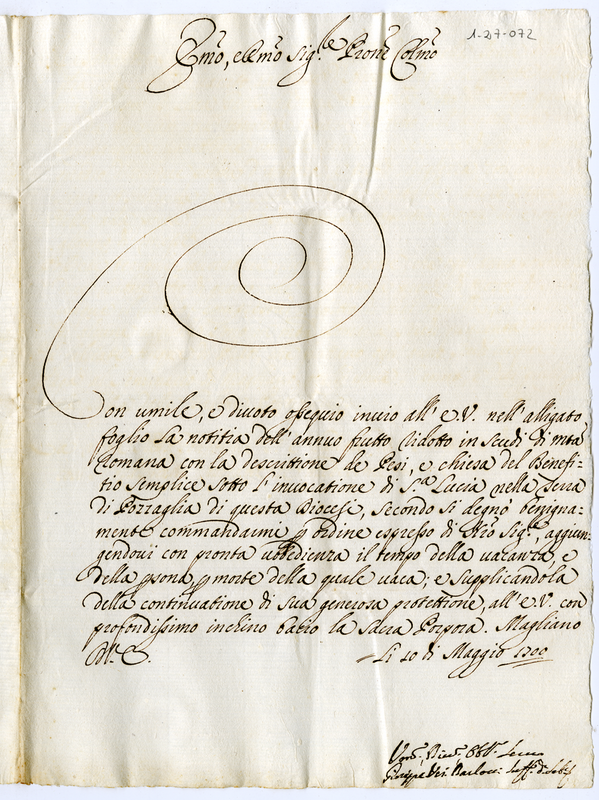 1-27-072
Em̃o, e Rm̃o Sig.re Prone Colmo
Con umile, e divoto ossequio invio all' E.V. nell' alligato
foglio la notitia dell' annuo frutto ridotto in scudi di mta
Romana con la descrittione de Pesi, e chiesa del Benefi-
tio semplice sotto l'invocatione di S.ta Lucia nella Terra
di Torraglia di questa Diocese, secondo si degnò benigna-
mente commandarmi p ordine espresso di Nro Sig.re, aggiun-
gendovi con pronta ubbedienza il tempo della vacanza, e
della psona, p morte della quale vaca; e supplicandola
della continuatione di sua generosa protettione, all' E.V. con
profondissimo inchino bacio la Sacra Porpora. Magliano
li 10 di Maggio 1700